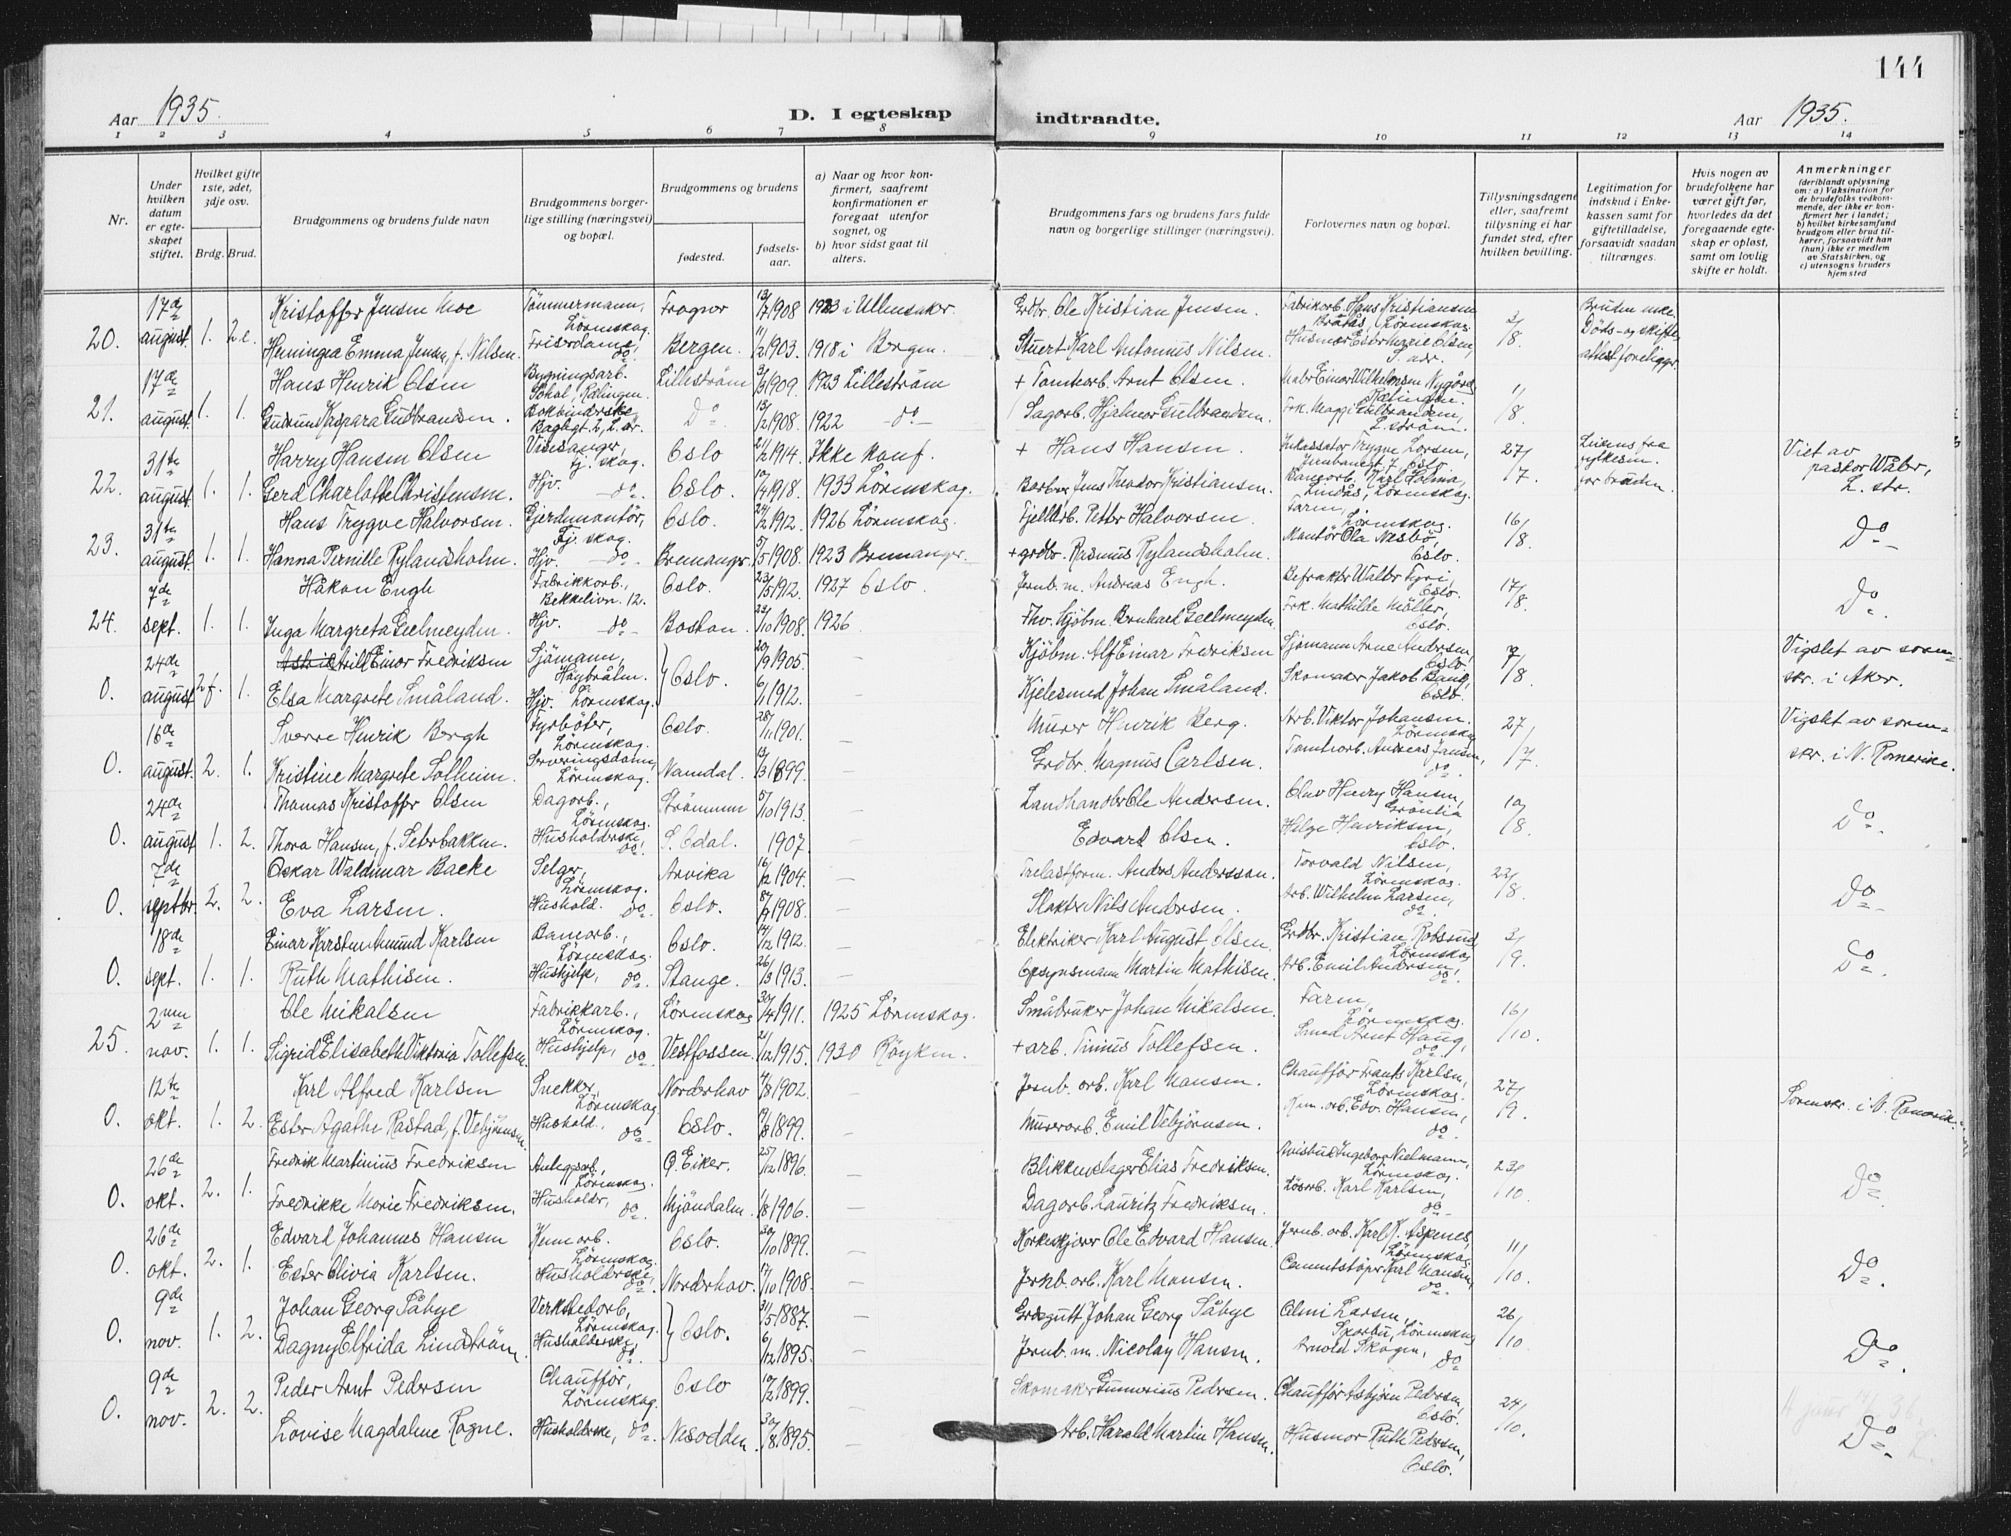 144
Aar 1935.
D. I egteskap indtraadte.
Aar 1935.
1 2 3 4 5 6 7 8 9 10 11 12 13 14
Nr.
Under hvilken datum er egteskapet stiftet.
Hvilket gifte 1ste, 2det, 3dje osv.
Brdg. Brud.
Brudgommens og brudens fulde navn
Brudgommens borgerlige stilling (næringsvei) og bopæl.
Brudgommens og brudens
fødested.
fødselsaar.
a) Naar og hvor konfirmert, saafremt konfirmationen er foregaat utenfor sognet, og
b) hvor sidst gaat til alters.
Brudgommens fars og brudens fars fulde navn og borgerlige stillinger (næringsvei).
Forlovernes navn og bopæl.
Tillysningsdagene eller, saafremt tillysning ei har fundet sted, efter hvilken bevilling.
Legitimation for indskud i Enkekassen samt for giftetilladelse, forsaavidt saadan tiltrænges.
Hvis nogen av brudefolkene har været gift før, hvorledes da det foregaaende egteskap er opløst, samt om lovlig skifte er holdt.
Anmerkninger (deriblandt oplysning om: a) Vaksination for de brudefolks vedkommende, der ikke er konfirmert her i landet; b) hvilket kirkesamfund brudgom eller brud tilhører, forsaavidt han (hun) ikke er medlem av Statskirken, og c) utensogns bruders hjemsted
20. 17de august 1. 2e. Kristoffer Jensen Moe Tømmermann, Lørenskog. Frogner 1908 1923 i Ullensaker Grdbr. Ole Kristian Jensen. Fabrikarb. Hans Kristiansen Bråtås, Lørenskog 2/8. Bruden enke.
Henninga Emma Jensen, f. Nilsen. Friserdame, do Bergen. 11/2 1903. 1918 i Bergen. Stuert Karl Antonius Nilsen. Husmor Ester Marie Olsen, S. adr. Døds- og skifteattest foreligger.
21. 17de august. 1. 1. Hans Henrik Olsen Bygningsarb. Rælingen. Lillestrøm 1909. 1923 Lillestrøm + Tomtearb. Arnt Olsen. Einar Wilhelmsen Nygård, Rælingen. 11/8
Gudrun Kaspara Gudbrandsen. Bokbinderske 1908. 1922 do Sagarb. Hjalmar Gulbrandsen. Frk. Maggi Gulbrandsen, L.strøm.
22. 31te august. 1. 1. Harry Hansen Olsen Visesanger, Fj. skog. Oslo 1914. Ikke konf. + Hans Hansen. Inkassator Trygve Larsen, Jernbanegt. 7 Oslo. 27/7. Lisens fra fylkesm. for bruden. Viet av pastor Wåler, L. str.
Gerd Charlotte Christensen. Hjv. do. Oslo. 1918. 1933 Lørenskog. Jens Theodor Kristiansen. Karl Holma, Lindås, Lørenskog
23. 31te august. 1. 1. Hans Trygve Halvorsen. Gjerdemontør, Fj. skog. Oslo. 1912. 1926 Lørenskog. Petter Halvorsen Farm, Lørenskog. 16/8. Do
Hanna Pernille Rylandsholm. Hjv. do. Bremanger. 5/5 1908. 1923 Bremanger. + grdbr. Rasmus Rylandsholm. Mantør Ola Nesbø, Oslo.
24. 7de sept. 1. 1. Håkon Engh Fabrikkarb., Bekkelivn. 12. Oslo. 23/5 1912. 1927 Oslo. Jernb. m. Andreas Engh. Befrakter Walter Fyri, Oslo. 17/8. Do
Inga Margreta Geelmeyden. Hjv. do. Boston. 22/10 1908. 1926 Fhv. Skjøbm. Bernhard Geelmeyden. Frk. Mathilde Møller, Oslo.
0. 24de august 2f. 1. Arild Einar Fredriksen Sjømann, Høybråtm. Oslo. 20/9 1905. – Kjøbm. Alf Einar Fredriksen Sjømann Arne Andersen, Oslo. 7/8 Vigslet av sorenskr. i Aker.
Elsa Margrete Småland. Hjv. Lørenskog. 6/1 1912. – Kjelesmed Johan Småland. Skomaker Jakob Bang, Oslo.
0. 16de august. 2. 1. Sverre Henrik Bergh Fyrbøter, Lørenskog. Oslo. 28/11 1901. – Murer Henrik Berg. Arb. Viktor Johansen. Lørenskog 27/7. Vigslet av sorenskr. i N. Romerike.
Kristine Margrete Solheim. Serveringsdame, Lørenskog. Namdal. 13/3 1899. – Grdbr. Magnus Carlsen. Tomtearb. Andreas Jansen, do.
0. 24de august 1. 2. Thomas Kristoffer Olsen Dagarb., Lørenskog. Strømmen 5/10 1913. – Landhandler Ole Andersen. Olav Henry Hansen, Grønlia 10/8. Do.
Thora Hansen, f. Seterbakken. Husholderske do. S. Odal. 1907. – Edvard Olsen. Helge Henriksen, Oslo.
0. 7de septbr. 2. 2. Oskar Waldemar Backe Selger, Lørenskog. Arvika 16/2 1904. – Trelastform. Anders Andersson. Torvald Nilsen, Lørenskog. 22/8 Do
Eva Larsen. Hushold. do. Oslo. 1908. – Slakter Nils Andersen. Arb. Wilhelm Larsen, do
0. 18de sept. 1. 1. Einar Karsten Amund Karlsen Banearb., Lørenskog. Oslo. 14/12 1912. – Elektriker Karl August Olsen. Grdbr. Kristian Robsrud, Lørenskog 3/9. Do.
Ruth Mathisen. Hushjelp, do. Stange. 26/3 1913. – Opsynsmann Martin Mathisen. Arb. Emil Andersen, do.
25. 2nen nov. 1. 1. Ole Mikalsen Fabrikkarb., Lørenskog. Lørenskog 30/4 1911. 1925 Lørenskog. Småbruker Johan Mikalsen. Farm, Lørenskog. 16/10.
Sigrid Elisabeth Viktoria Tollefsen. Hushjelp, do. Vestfossen. 21/12 1915. 1930 Røyken. + arb. Tinius Tollefsen. Smed Arnt Haug, do
0. 12te okt. 1. 2. Karl Alfred Karlsen Snekker, Lørenskog Norderhov 1902. – Jernb. arb. Karl Mansen. Chauffør Frants Karlsen, Lørenskog. 27/9. Sorenskr. i N. Romerike.
Ester Agathe Rastad, f. Vebjørnsen. Hushold., do. Oslo. 1899. – Murerarb. Emil Vebjørnsen. Kem. arb. Edv. Hansen, do.
0. 26de okt. 2. 1. Fredrik Martinius Fredriksen Anlegsarb., Lørenskog. Ø. Eiker. 25/12 1896. – Blikkenslager Elias Fredriksen. Avisbud Ingeborg Nielmann, Lørenskog. 23/10. Do
Fredrikke Marie Fredriksen. Husholder, do. Mjøndalen. 1/8 1906. – Dagarb. Lauritz Fredriksen. Karl Karlsen, do
0. 26de okt. 2. 1. Edvard Johannes Hansen Kemearb. Lørenskog. Oslo. 30/10 1899. – Korkeskjærer Ole Edvard Hansen. Jernb. arb. Karl K. Aspenes, Lørenskog 11/10. Do.
Ester Olivia Karlsen. Husholderske, do. Norderhov. 17/10 1908. – Jernb. arb. Karl Mansen. Cementstøper Karl Mansen, do.
0. 9de nov. 1. 2. Johan Georg Såbye Verkstedarb., Lørenskog. Oslo. 31/5 1887. – Grdsgutt Johan Georg Såbye Almi Larsen, Skarbu, Lørenskog 26/10 Do.
Dagny Elfrida Lindstrøm. Husholderske, do. 6/12 1895. – Jernb. m. Nicolay Hansen. Arnold Skogen, do
0. 9de nov. 2. 2. Peder Arnt Pedersen Chauffør, Lørenskog. Oslo 1899. – Skomaker Gunnerius Pedersen. Chauffør Asbjørn Pedersen, Oslo. 24/10. Do
Lovise Magdalene Rogne. Husholderske, do. Nesodden. 30/8 1895. – Arb. Harald Martin Hansen. Husmor Ruth Pedersen, Oslo.